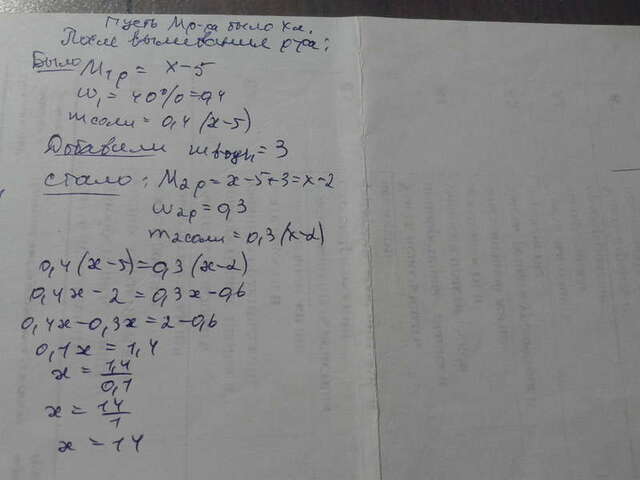 Пусть Мр-ра было х л.
После выливания р-ра:
Было М1р = х-5
w1 = 40% = 0,4
mсоли = 0,4(х-5)
Добавили mводы = 3
стало: М2р = х-5+3 = х-2
w2р = 0,3
m2соли = 0,3(х-2)
0,4(х-5) = 0,3(х-2)
0,4х - 2 = 0,3х - 0,6
0,4х - 0,3х = 2 - 0,6
0,1х = 1,4
х = 1,4/0,1
х = 14/1
х = 14